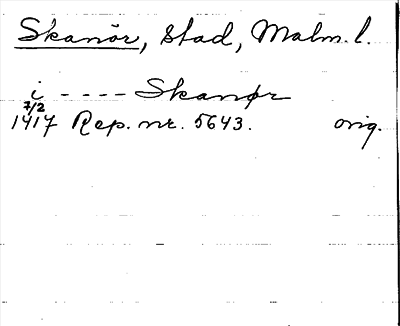 Skanör, stad, Malm. l.
i - - - - Skanør
7/2
1417 Rep. nr. 5643. orig.